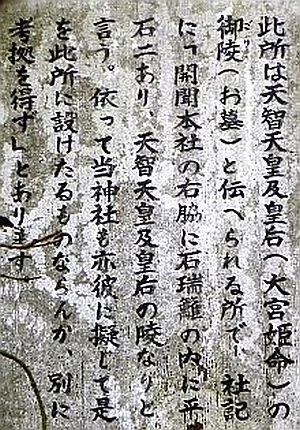 此所は天智天皇及皇后(大宮姫命)の
御陵(お墓)と伝へられる所で、社記
に「開聞本社の右脇に石瑞籬の内に平
石二あり、天智天皇及皇后の陵なりと
言う。依って当神社も亦彼に擬して是
を此所に設けたるものならんか、別に
考拠を得ず」とあります